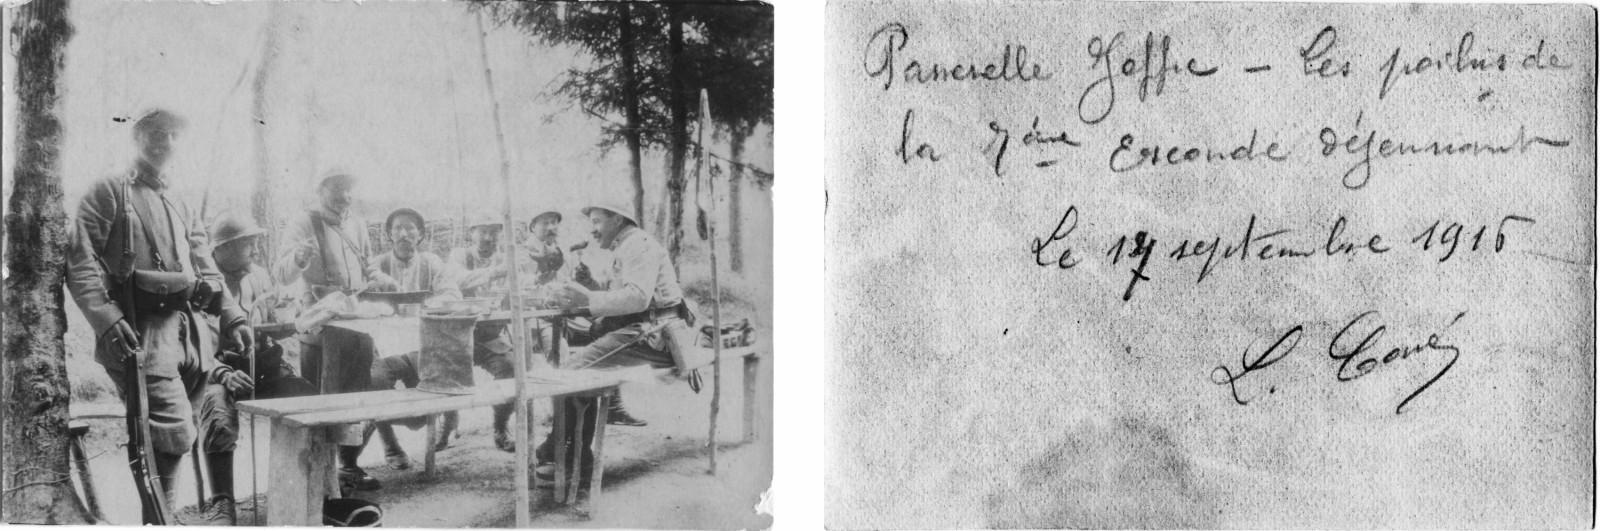 Passerelle Joffre - Les poilus de
la 7ème Escouade déjeunant
Le 17 septembre 1915
L.